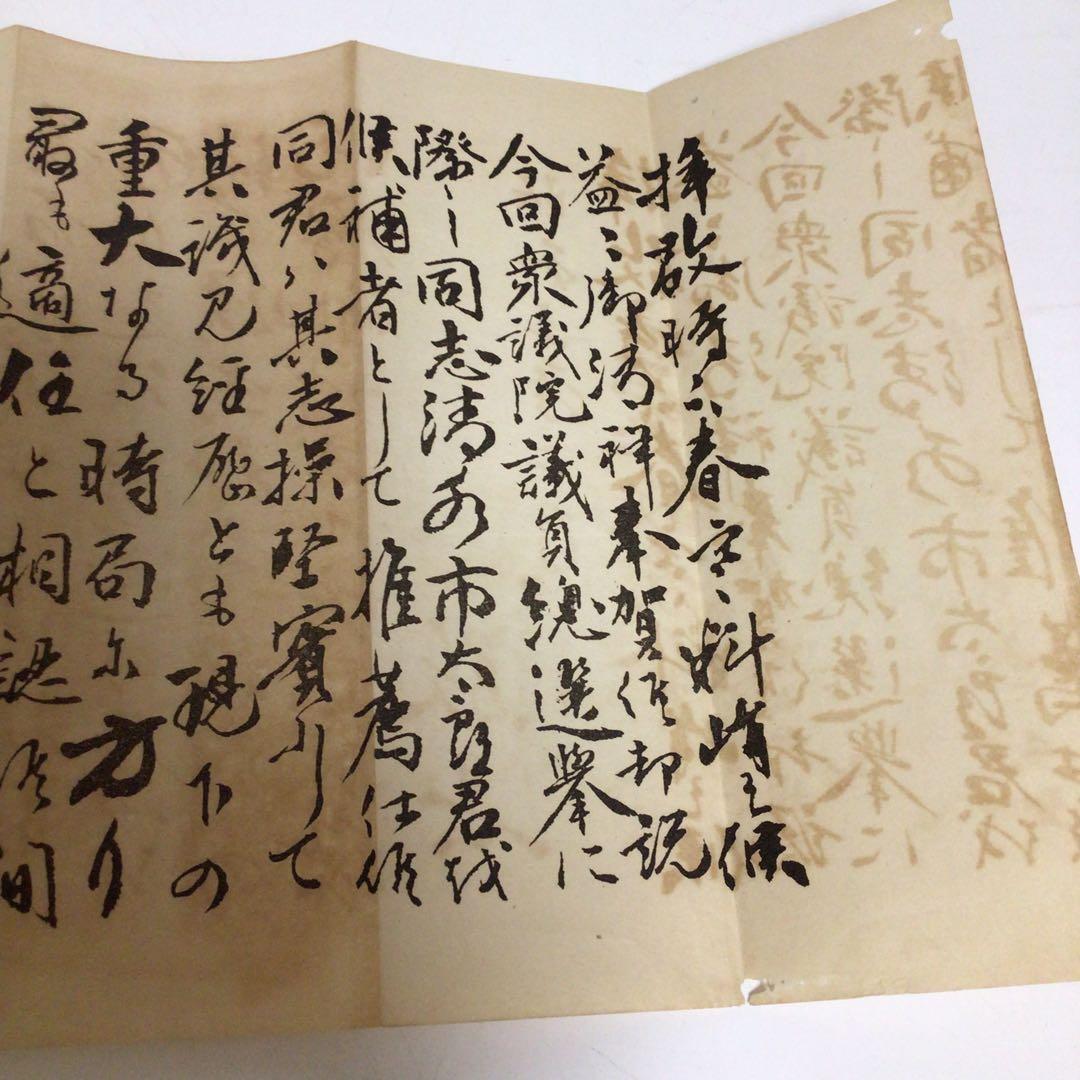 拝啓時下春寒料峭之候
益々御清祥奉賀候却説
今回衆議院議員総選挙に
際し同志清水市太郎君を
候補者として推薦仕候
同君ハ其志操堅実にして
其識見経歴とも現下の
重大なる時局に方り
最も適任と相認候間